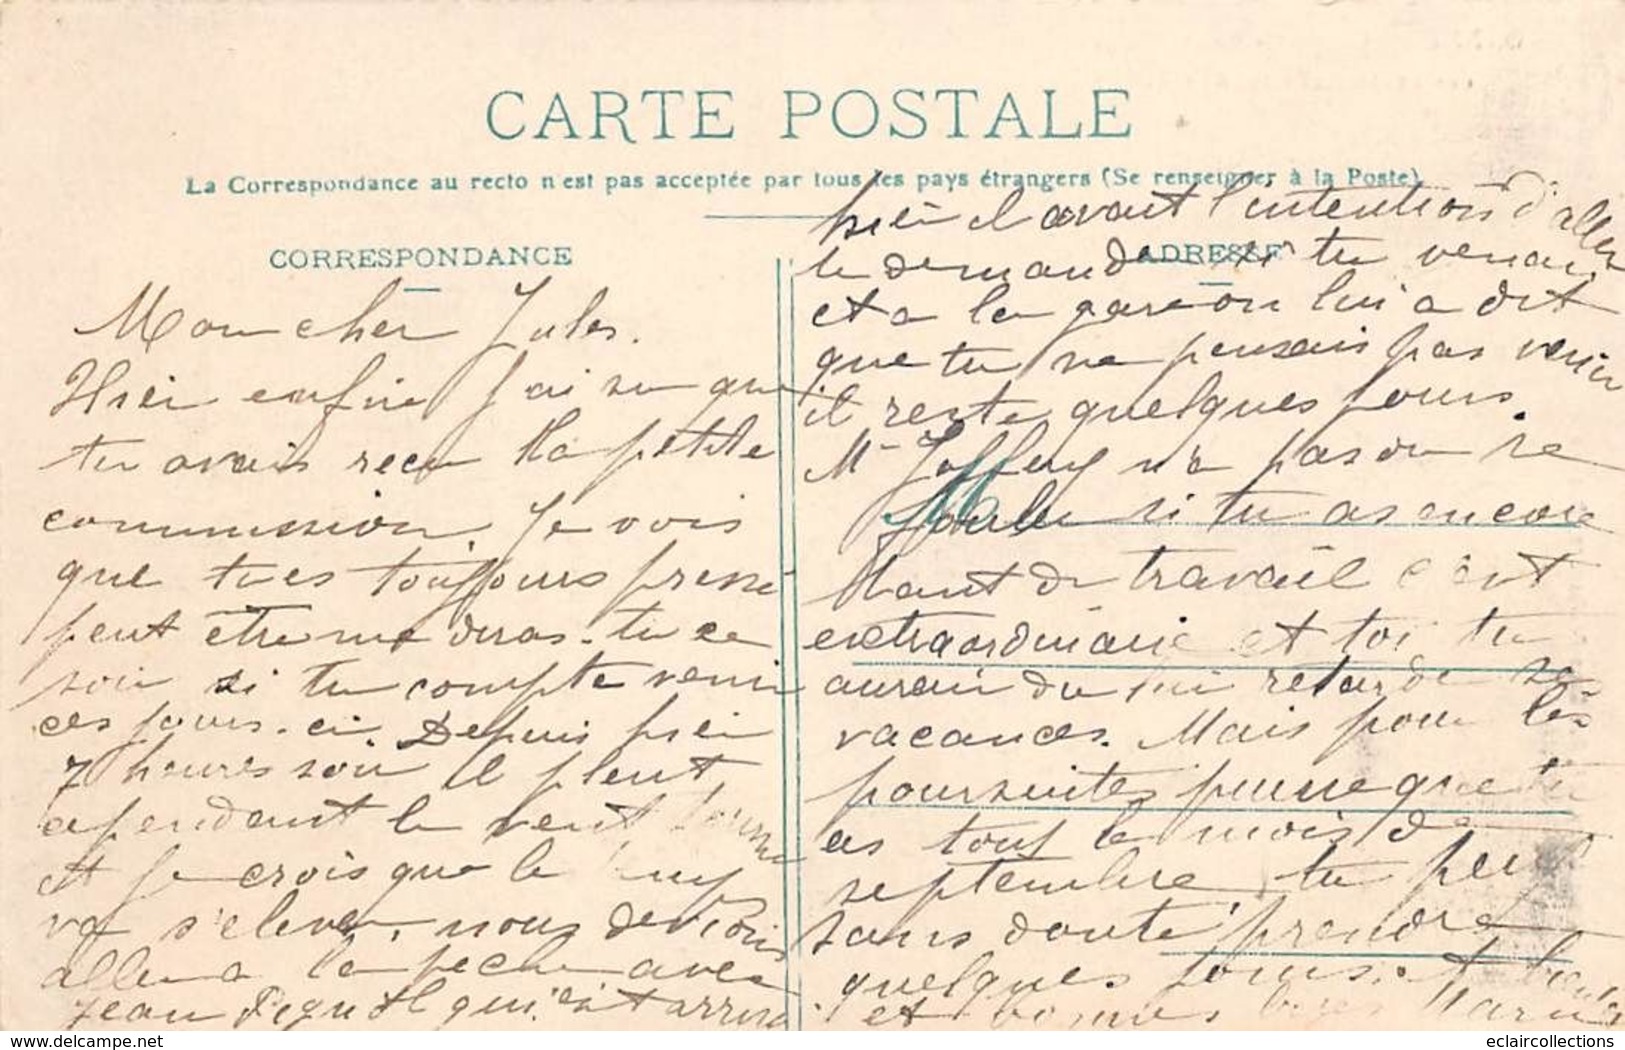 CARTE POSTALE
La Correspondance au recto n'est pas acceptée par tous les pays étrangers (Se renseigner à la Poste)
CORRESPONDANCE
Mon cher Jules.
Hier enfin j'ai su que
tu avais reçu ta petite
commission. Je vois
que tu es toujours pressé
peut être me diras-tu ce
soir si tu compte venir
ces jours-ci. Depuis hier
7 heures soir il pleut
cependant le vent tourne
et je crois que le temps
va s'elever. nous devions
aller a la peche avec
Jean qui est arrivé
ADRESSE
hier il avait l'intention d'aller
te demander si tu venais
et a la gare on lui a dit
que tu ne pensais pas venir
il reste quelques jours.
Mr n'a pas ou se
si tu as encore
tant de travail c'est
extraordinaire et toi tu
aurais du lui retarde se
vacances. Mais pour les
poursuites que tu
as tout le mois de
septembre, tu peu
sans doute prendre
quelques jours. A bientot
et bonnes
16
eclaircollections
www.delcampe.net